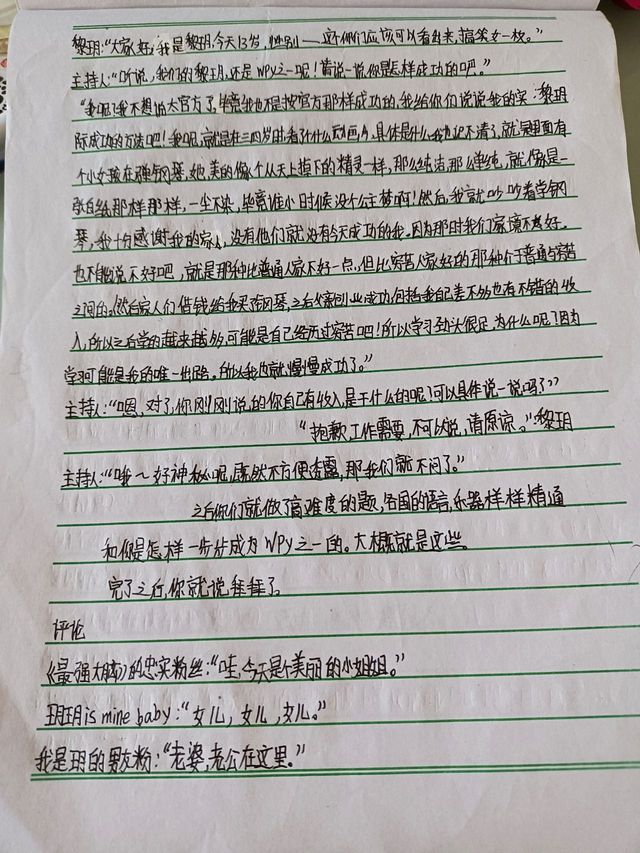 黎玥:“大家好,我是黎玥,今天13岁,性别——这个你们应该可以看出来,搞笑女一枚。”
主持人:“听说,我们的黎玥,还是WPY之一呢!请说一说你是怎样成功的吧。”
“我呢?我不想说大官方了,毕竟我也不是按官方那样成功的,我给你们说说我的实:黎玥
际成功的方法吧!我呢,就是在三四岁时看了什么动画片,具体是什么我也记不清了,就是里面有
个小女孩在弹钢琴,她美的像个从天上掉下的精灵一样,那么纯洁那么单纯,就像是一
张白纸那样那样,一尘不染,毕竟谁小时候没个公主梦啊!然后,我就吵吵着学钢
琴,我十分感谢我的家人,没有他们就没有今天成功的我。因为那时我们家境不太好。
也不能说不好吧,就是那种比普通人家不好一点,但比穷苦人家好的那种介于普通与穷苦
之间的。然后家人们借钱给我买了钢琴,之后父亲创业成功,包括我自己差不多也有不错的收
入,所以之后学的越来越多,可能是自己经历过穷苦吧!所以学习劲头很足,为什么呢?因为
学习可能是我的唯一出路。所以我也就慢慢成功了。”
主持人:“嗯,对了,你刚刚说的你自己有收入,是干什么的呢?可以具体说一说吗?”
“抱歉,工作需要,不可以说,请原谅。”:黎玥
主持人:“哦~好神秘呢,既然不方便透露,那我们就不问了。”
之后你们就做了高难度的题,各国的语言,乐器样样精通
和你是怎样一步步成为WPY之一的。大概就是这些
完了之后,你就说拜拜了
评论
《最强大脑》的忠实粉丝:“哇,今天是个美丽的小姐姐。”
玥玥is mine baby:“女儿,女儿,女儿。”
我是玥的男友粉:“老婆,老公在这里。”